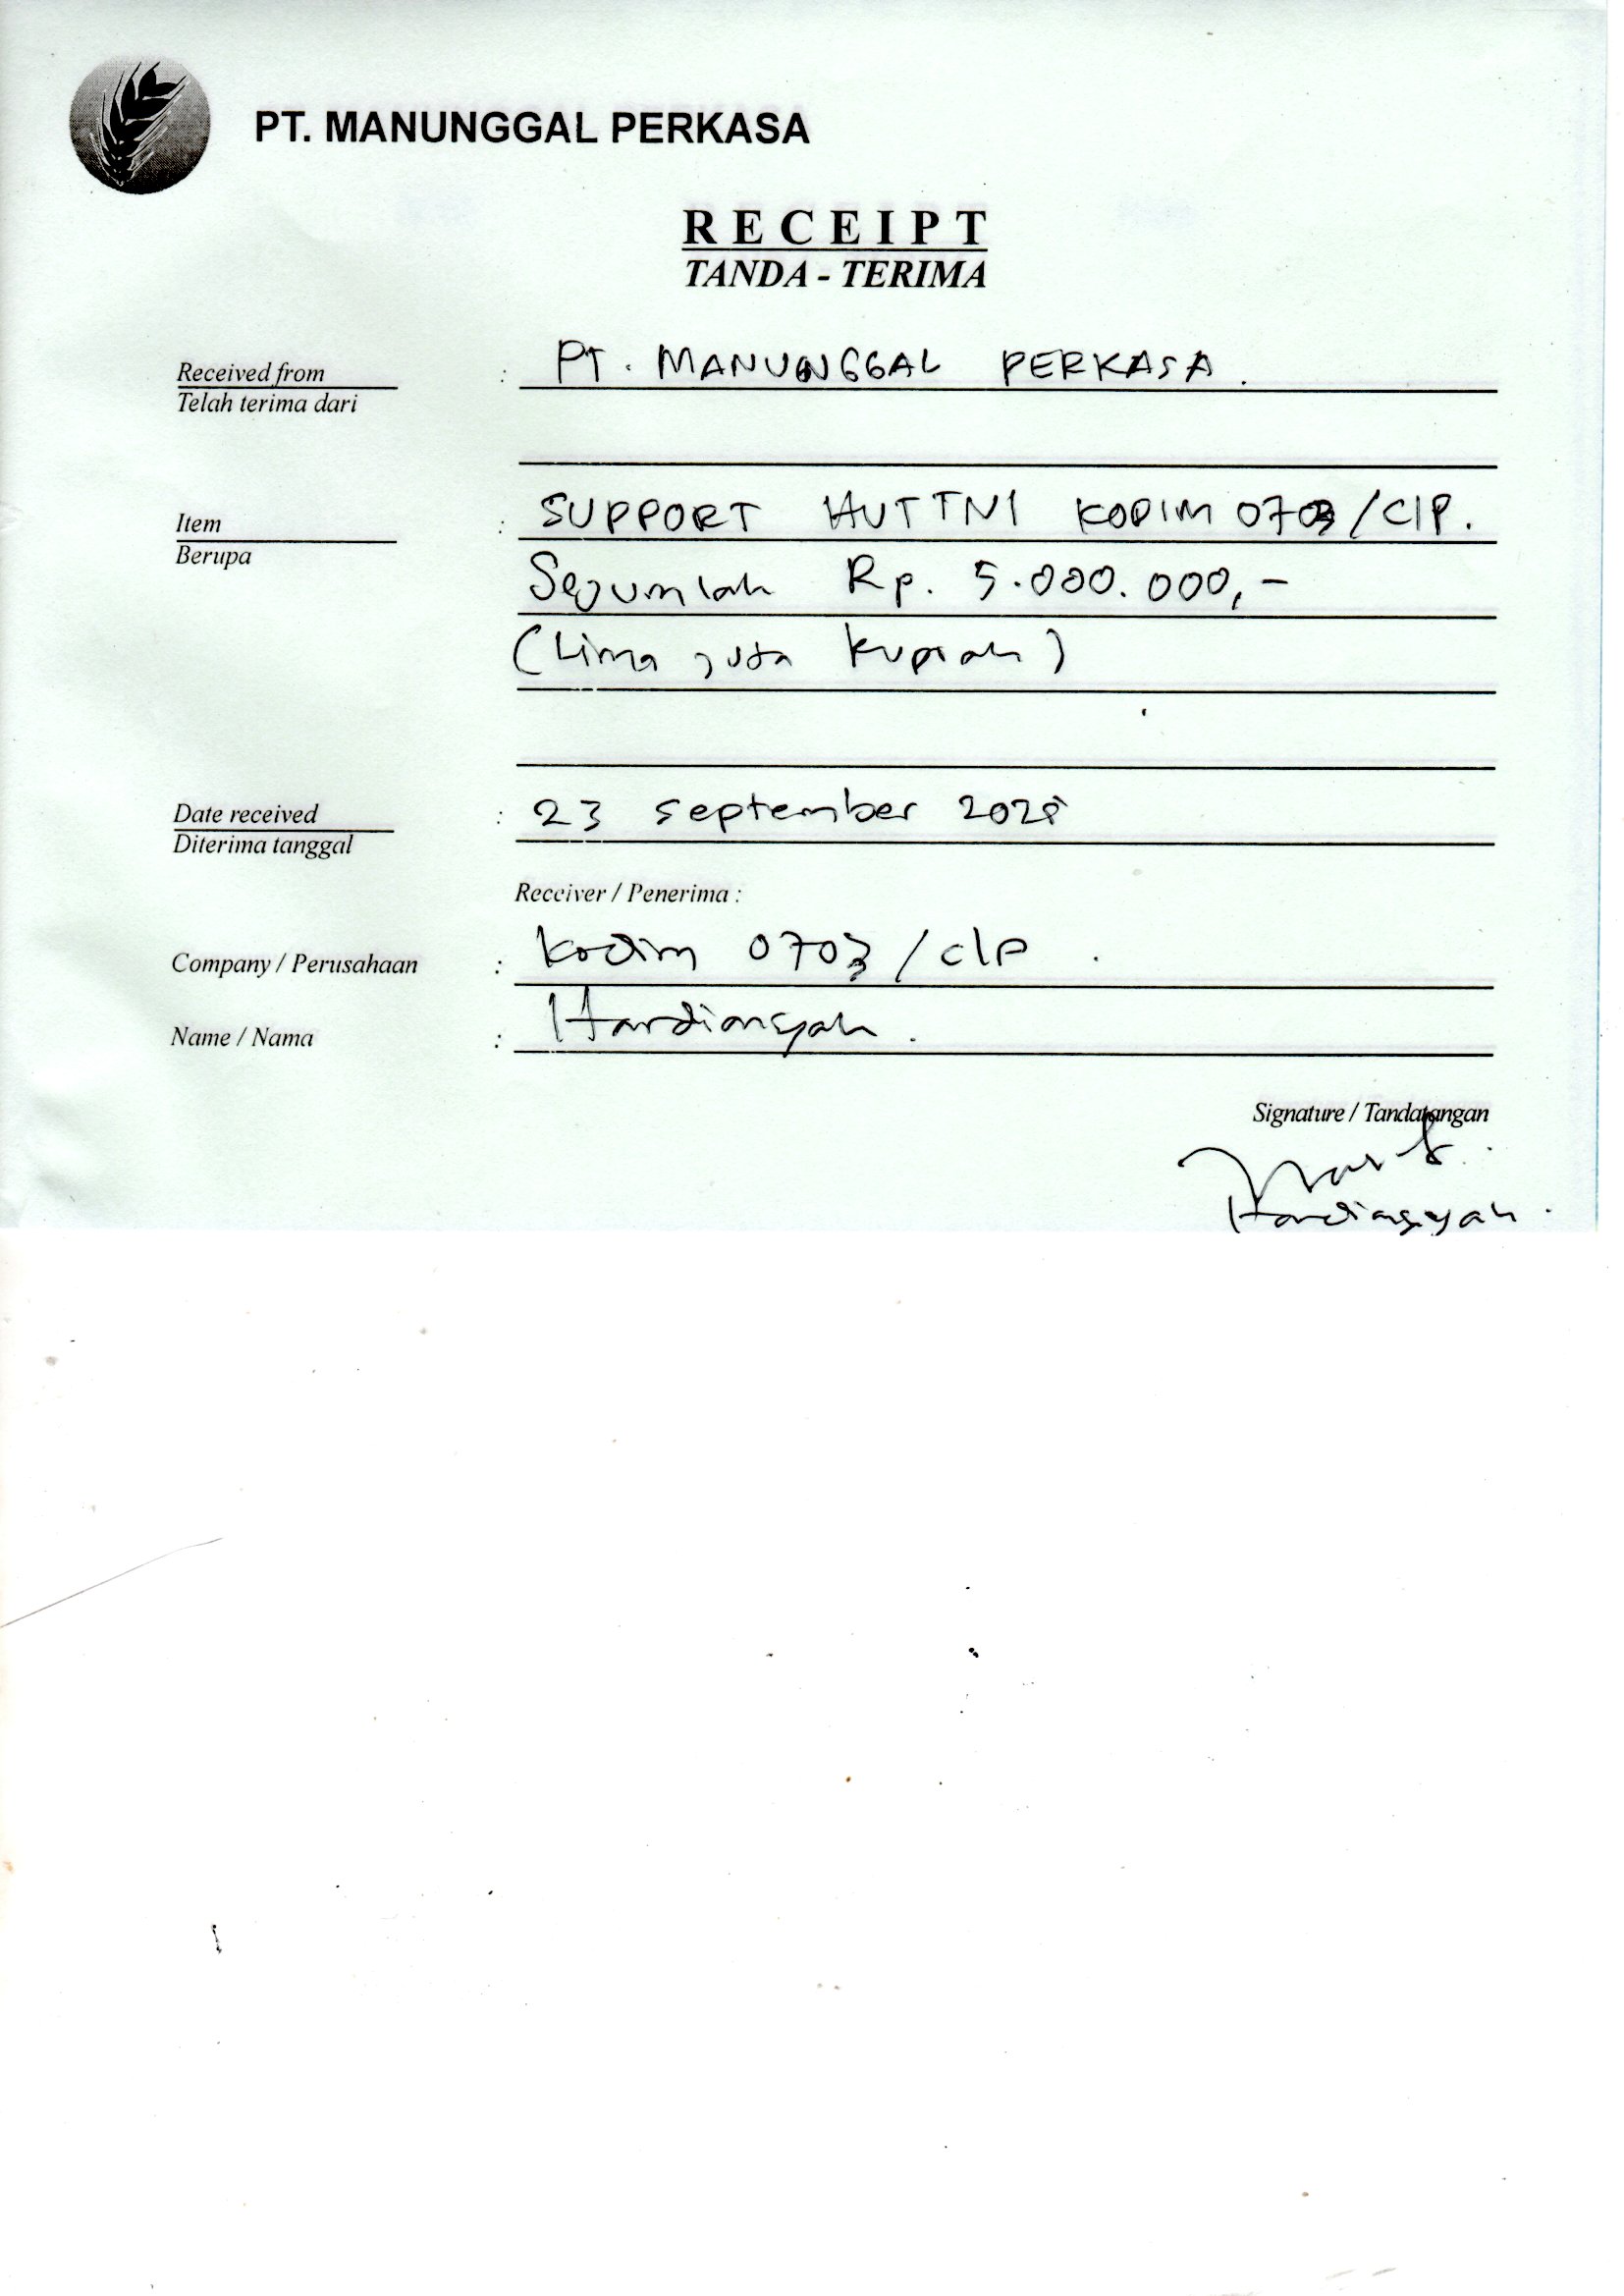 PT. MANUNGGAL PERKASA
RECEIPT
TANDA - TERIMA
Received from : PT. MANUNGGAL PERKASA.
Telah terima dari
Item : SUPPORT HUT TNI KODIM 0703/CLP.
Berupa
Sejumlah Rp. 5.000.000,-
(Lima juta Rupiah)
Date received : 23 september 2025
Diterima tanggal
Receiver / Penerima :
Company / Perusahaan : Kodim 0703/clp.
Name / Nama : Hardiansyah.
Signature / Tandatangan
Hardiansyah.